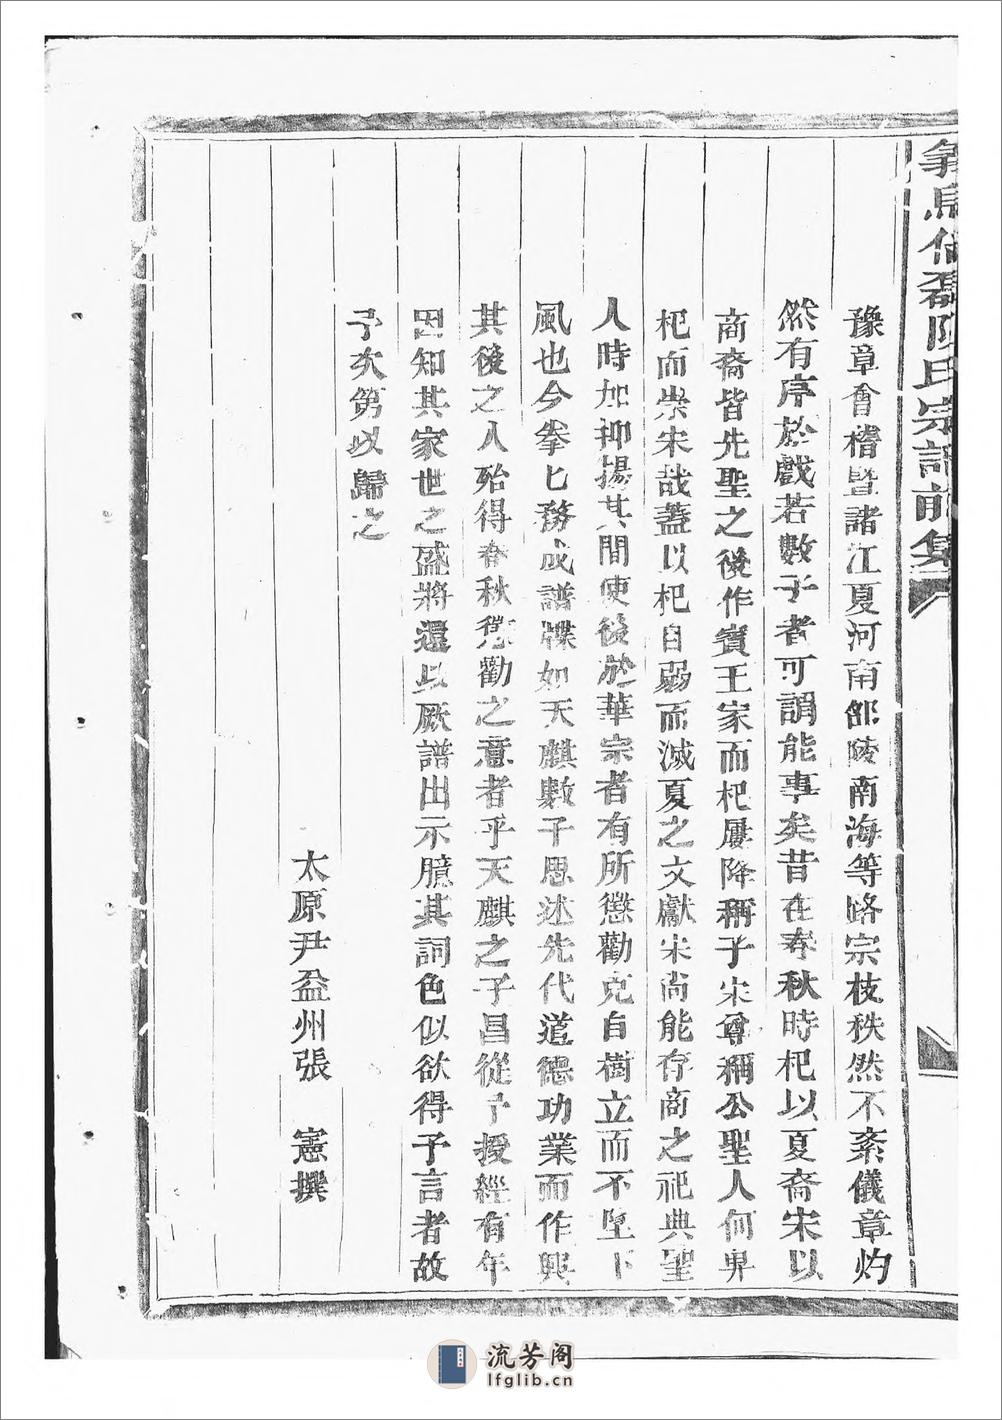 義烏倍磊陳氏宗譜前集
豫章會稽暨諸江夏河南郃陵南海等路宗枝秩然不紊儀章灼
然有序於戲若數子者可謂能事矣昔在春秋時杞以夏裔宋以
商裔皆先聖之後作賓王家而杞屢降稱子宋尊稱公聖人何卑
杞而崇宋哉蓋以杞自弱而滅夏之文獻宋尚能存商之祀典聖
人時加抑揚其間使後於華宗者有所懲勸克自樹立而不墜下
風也今拳匕務成譜牒如天麒數子思述先代道德功業而作興
其後之人殆得春秋懲勸之意者乎天麒之子昌從予授經有年
因知其家世之盛將還以厥譜出示臆其詞色似欲得予言者故
予次第以歸之
太原尹益州張 憲撰
流芳阁
lfglib.cn